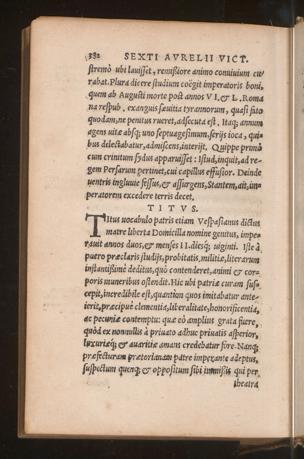 382 SEXTI AVRELII VICT.
stremò ubi lauisset, remissiore animo conuiuium cu
rabat. Plura dicere studium coëgit imperatoris boni,
quem ab Augusti morte post annos VI & L, Roma
na respub. exanguis sæuitia tyrannorum, quasi fato
quodam, ne penitus rueret, adsecuta est. Itaq; annum
agens uitæ absq; uno septuagesimum, serijs ioca, qui
bus delectabatur, admiscens, interijt. Quippe primò
cum crinitum sydus apparuisset: Istud, inquit, ad re
gem Persarum pertinet, cui capillus effusior. Deinde
uentris ingluuie fessus, & assurgens, Stantem, ait, im
peratorem excedere terris decet.
TITVS.
TItus uocabulo patris etiam Vespasianus dictus
matre liberta Domicilla nomine genitus, impe
rauit annos duos, & menses II. diesq; uiginti. Iste à
puero præclaris studijs, probitatis, militiæ, literarum
instantissimè deditus, quò contenderet, animi & cor
poris muneribus ostendit. Hic ubi patriæ curam sus
cepit, incredibile est, quantùm quos imitabatur ante
ierit, præcipuè clementia, liberalitate, honorificentia,
ac pecuniæ contemptu: quæ eò amplius grata fuere,
quòd ex nonnullis à priuato adhuc priuatis asperior,
luxuriæq; & auaritiæ amans credebatur fore. Nanq;
præfecturam prætorianam patre imperante adeptus,
suspectum quenq; & oppositum sibi immissis qui per
theatra